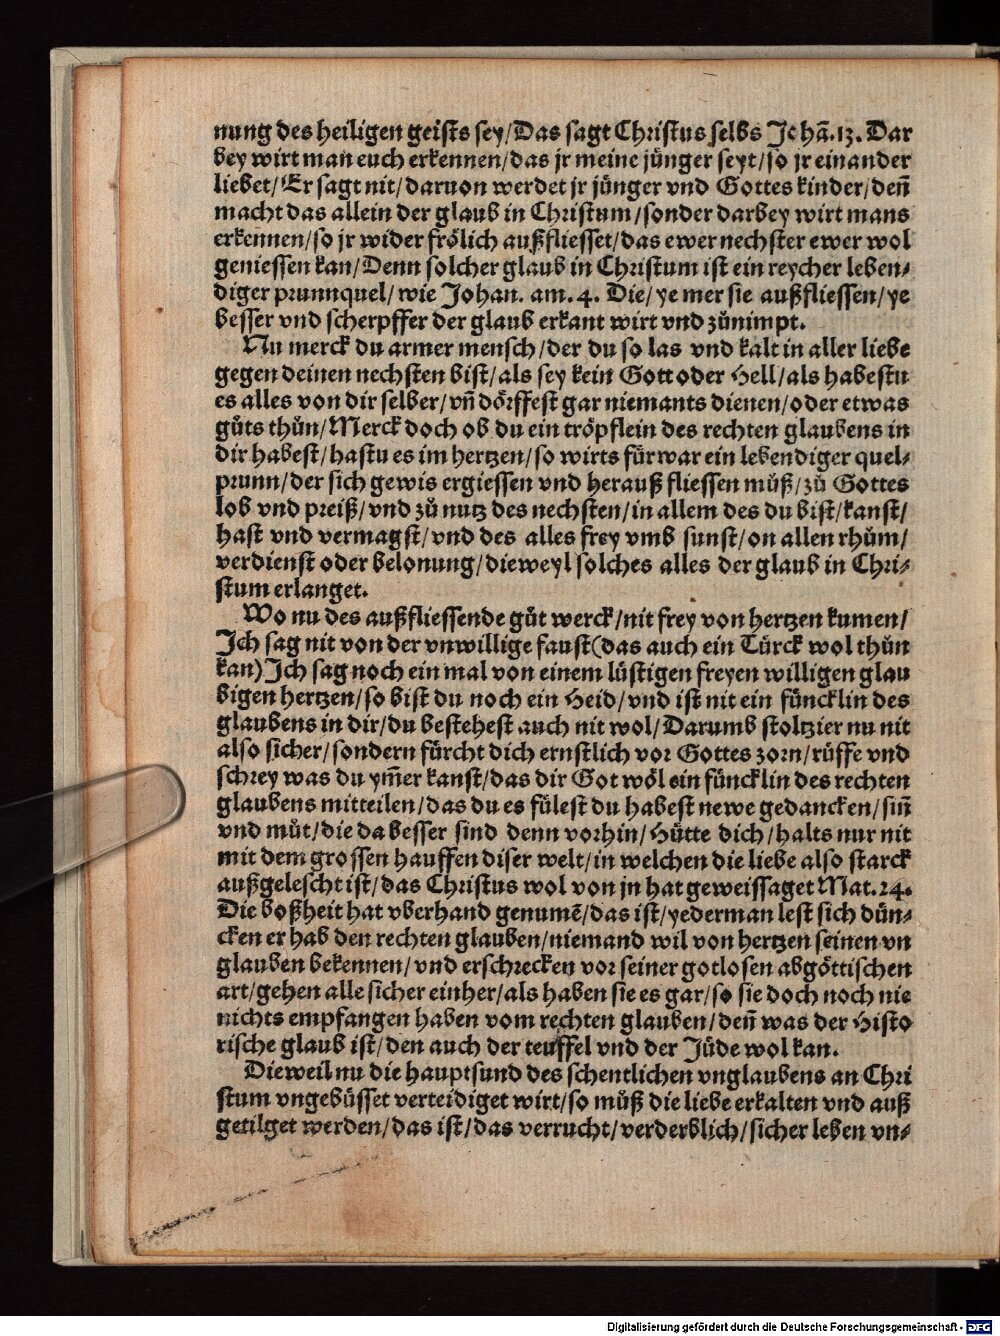 nung des heiligen geists sey/Das sagt Christus selbs Johã.13. Dar
bey wirt man euch erkennen/das jr meine jünger seyt/so jr einander
liebet/Er sagt nit/daruon werdet jr jünger vnd Gottes kinder/deñ
macht das allein der glaub in Christum/sonder darbey wirt mans
erkennen/so jr wider frölich außfliesset/das ewer nechster ewer wol
geniessen kan/Denn solcher glaub in Christum ist ein reycher leben⸗
diger prunnquel/wie Johan. am. 4. Die/ye mer sie außfliessen/ye
besser vnd scherpffer der glaub erkant wirt vnd zůnimpt.
Nu merck du armer mensch/der du so las vnd kalt in aller liebe
gegen deinen nechsten bist/als sey kein Gott oder Hell/als habestu
es alles von dir selber/vñ dörffest gar niemants dienen/oder etwas
gůts thůn/Merck doch ob du ein tröpflein des rechten glaubens in
dir habest/hastu es im hertzen/so wirts fürwar ein lebendiger quel⸗
prunn/der sich gewis ergiessen vnd herauß fliessen můß/zů Gottes
lob vnd preiß/vnd zů nutz des nechsten/in allem des du bist/kanst/
hast vnd vermagst/vnd des alles frey vmb sunst/on allen rhům/
verdienst oder belonung/dieweyl solches alles der glaub in Chri⸗
stum erlanget.
Wo nu des außfliessende gůt werck/nit frey von hertzen kumen/
Ich sag nit von der vnwillige faust(das auch ein Türck wol thůn
kan)Ich sag noch ein mal von einem lüstigen freyen willigen glau
bigen hertzen/so bist du noch ein Heid/vnd ist nit ein füncklin des
glaubens in dir/du bestehest auch nit wol/Darumb stoltzier nu nit
also sicher/sondern fürcht dich ernstlich vor Gottes zorn/rüffe vnd
schrey was du ym̃er kanst/das dir Got wöl ein füncklin des rechten
glaubens mitteilen/das du es fülest du habest newe gedancken/siñ
vnd můt/die da besser sind denn vorhin/Hütte dich/halts nur nit
mit dem grossen hauffen diser welt/in welchen die liebe also starck
außgelescht ist/das Christus wol von jn hat geweissaget Mat.24.
Die boßheit hat vberhand genumẽ/das ist/yederman lest sich dün⸗
cken er hab den rechten glauben/niemand wil von hertzen seinen vn
glauben bekennen/vnd erschrecken vor seiner gotlosen abgöttischen
art/gehen alle sicher einher/als haben sie es gar/so sie doch noch nie
nichts empfangen haben vom rechten glauben/deñ was der Histo
rische glaub ist/den auch der teuffel vnd der Jüde wol kan.
Dieweil nu die hauptsund des schentlichen vnglaubens an Chri
stum vngebüsset verteidiget wirt/so můß die liebe erkalten vnd auß
getilget werden/das ist/das verrucht/verderblich/sicher leben vn⸗
Digitalisierung gefördert durch die Deutsche Forschungsgemeinschaft - DFG